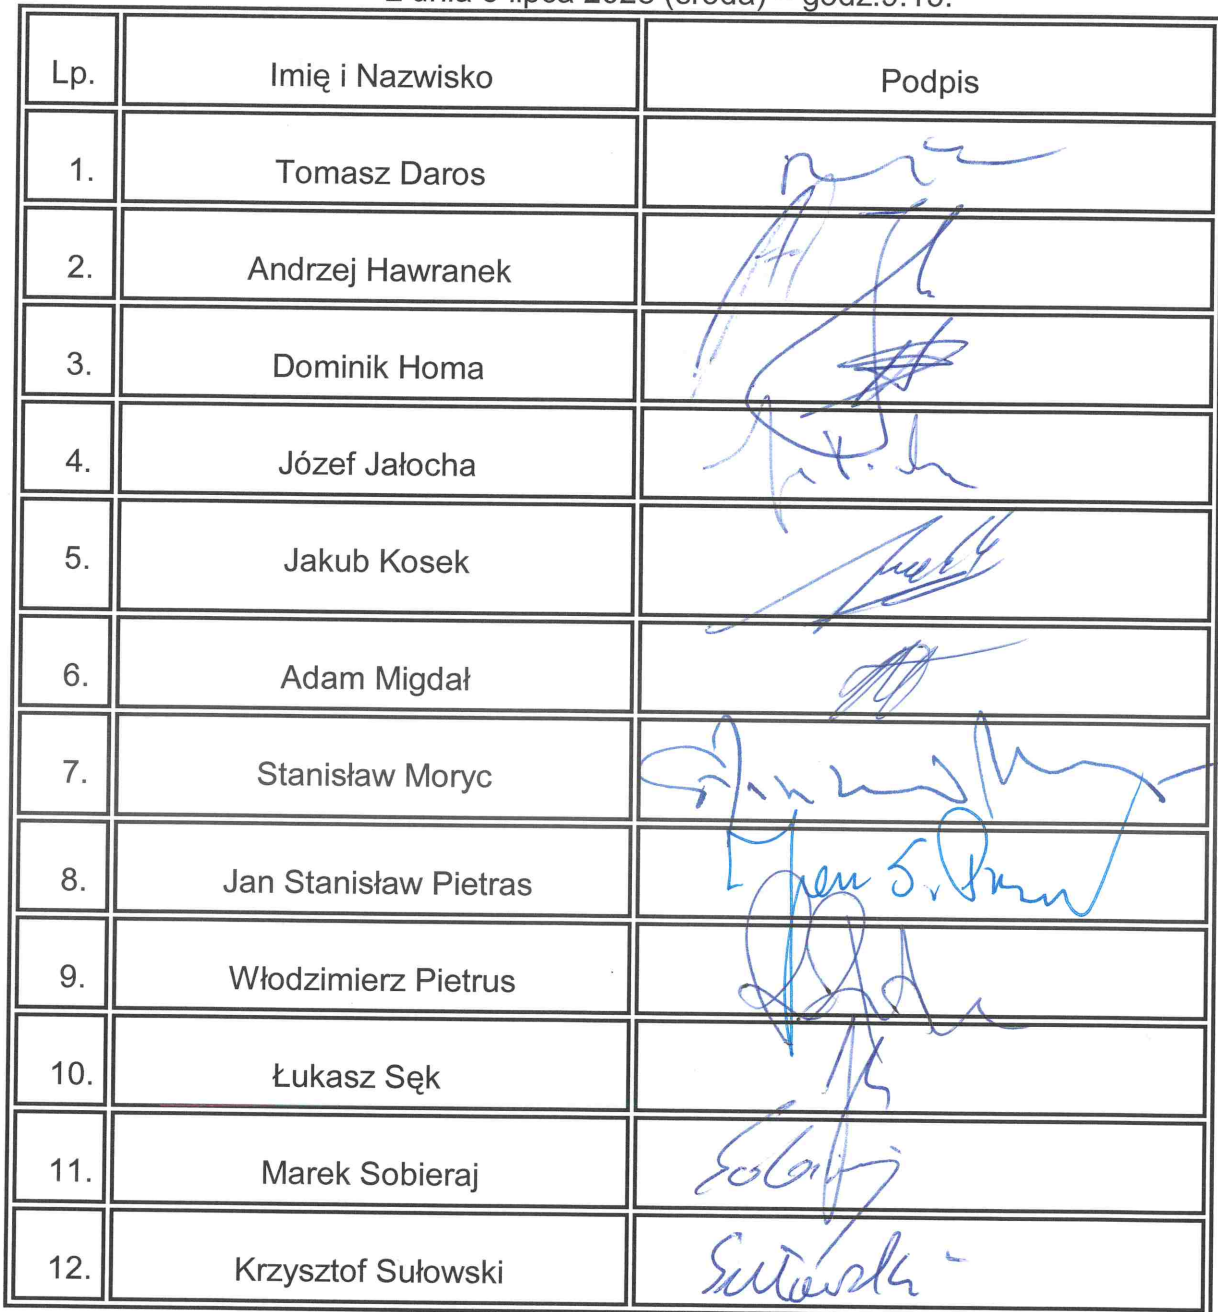 Z dnia 5 lipca 2023 (środa) – godz.9.15.
Lp. Imię i Nazwisko Podpis
1. Tomasz Daros
2. Andrzej Hawranek
3. Dominik Homa
4. Józef Jałocha
5. Jakub Kosek
6. Adam Migdał
7. Stanisław Moryc
8. Jan Stanisław Pietras
9. Włodzimierz Pietrus
10. Łukasz Sęk
11. Marek Sobieraj
12. Krzysztof Sułowski Sułowski